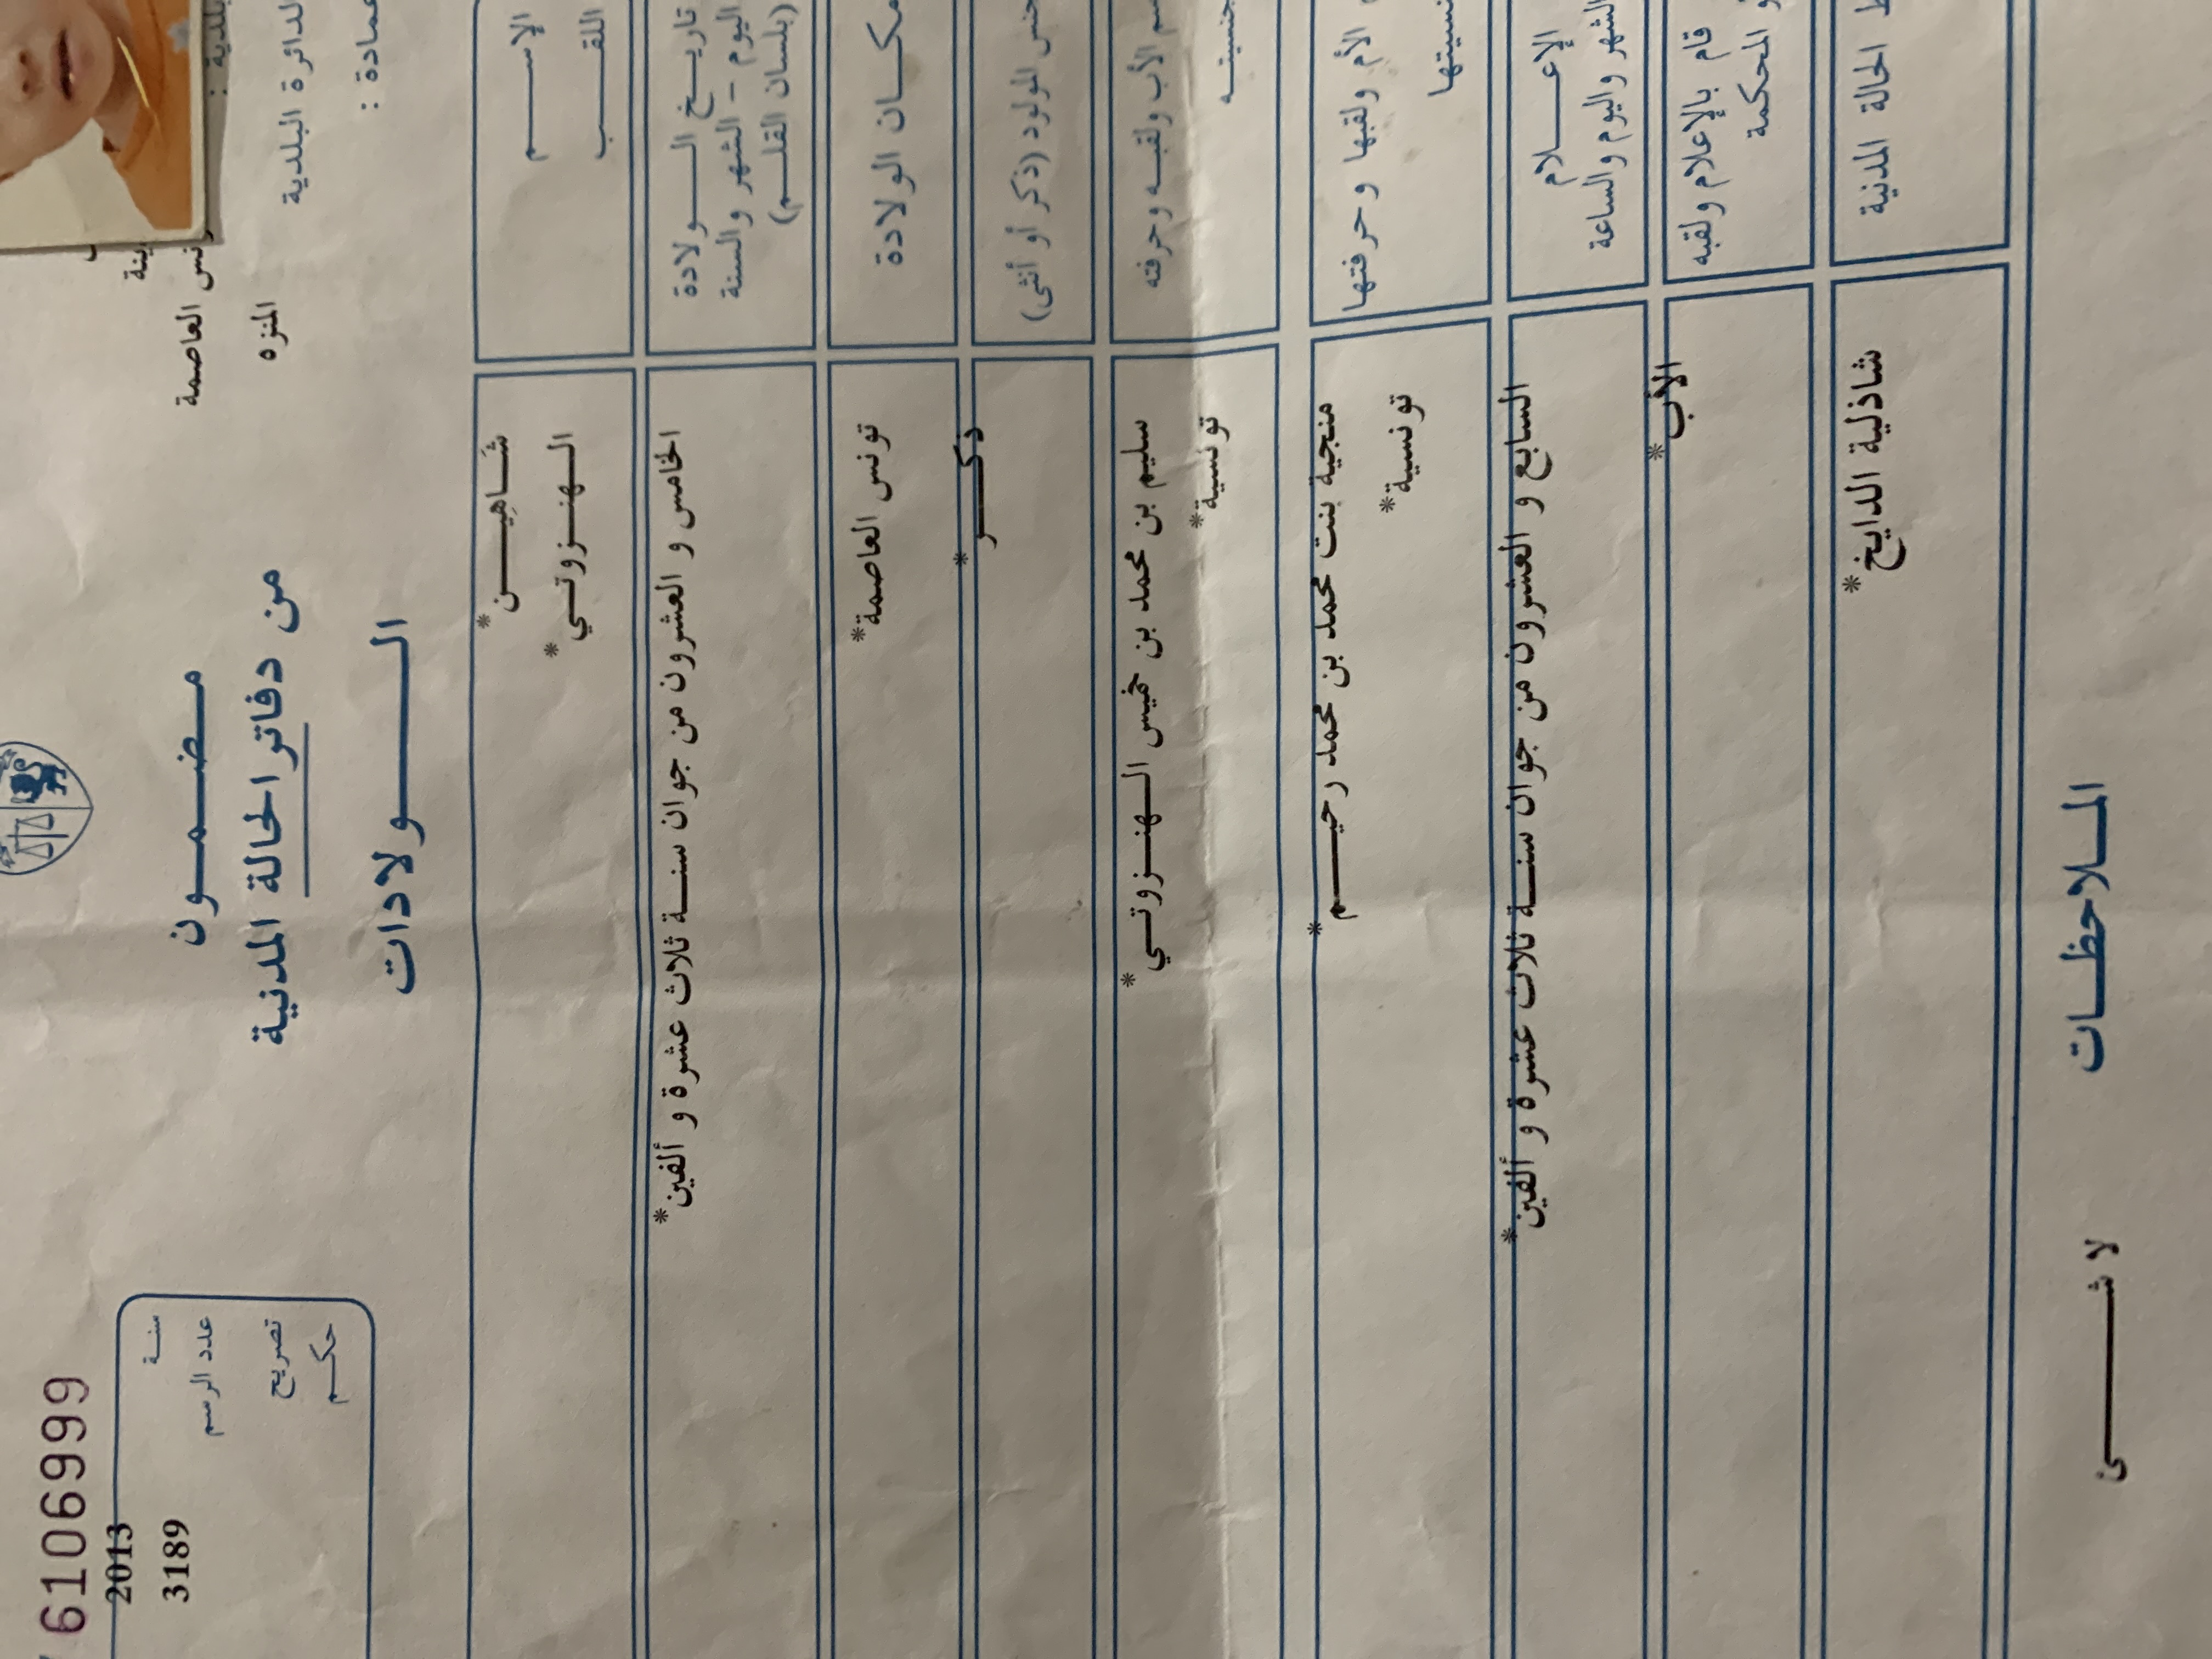 6106999
سنة 2013
عدد الرسم 3189
تصريح
حكم
مضمون
من دفاتر الحالة المدنية
الولادات
تونس العاصمة
الدائرة البلدية المنزه
عمادة :
الإسم شَاهِين*
اللقب الهنزوتي*
تاريخ الولادة
اليوم - الشهر والسنة
(بلسان القلم)
الخامس و العشرون من جوان سنة ثلاث عشرة و ألفين*
مكان الولادة تونس العاصمة*
جنس المولود (ذكر أو أنثى) ذكر*
إسم الأب ولقبه وحرفته سليم بن محمد بن خميس الهنزوتي*
جنسيته تونسية*
الأم ولقبها وحرفتها منجية بنت محمد بن محمد رحيم*
جنسيتها تونسية*
الإعلام
الشهر واليوم والساعة
السابع و العشرون من جوان سنة ثلاث عشرة و ألفين*
قام بالإعلام ولقبه
أو المحكمة
الأب*
الحالة المدنية شاذلية الدايخ*
الملاحظات
لا شئ